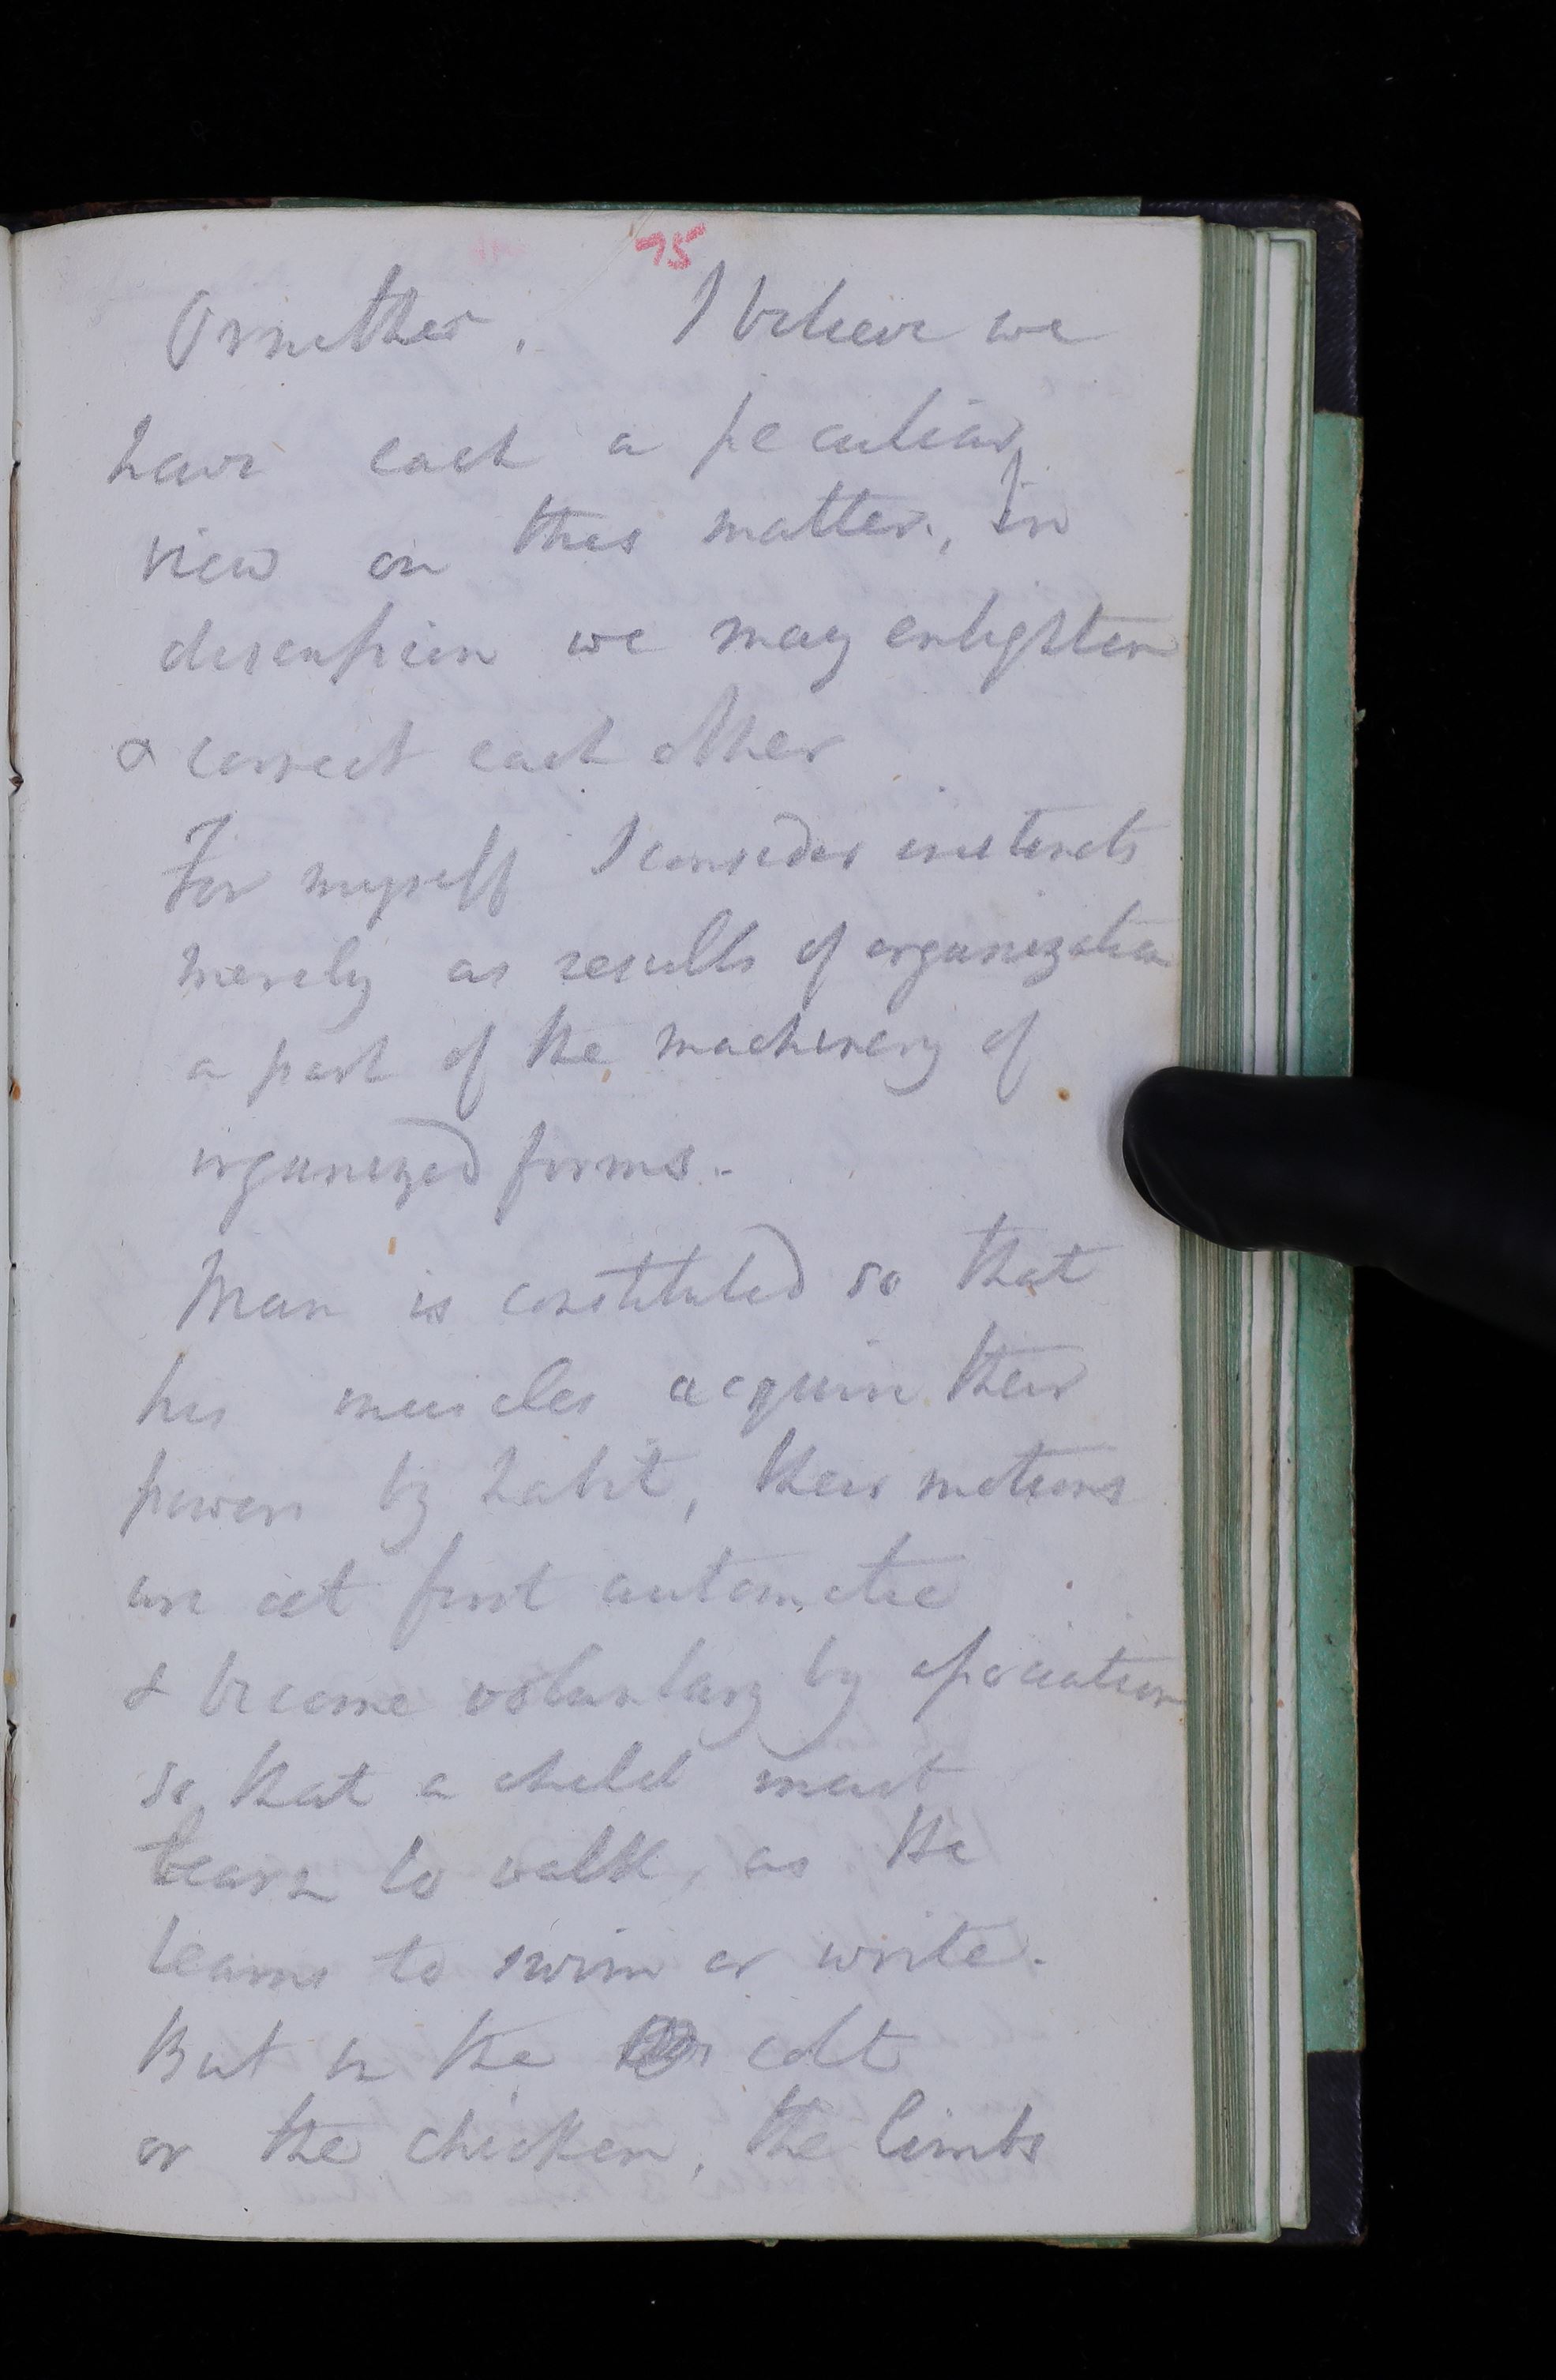 75
Ornither. I believe we
have each a peculiar
view on this matter, In
discussion we may enlighten
& correct each other
For myself I consider instincts
merely as results of organization
a part of the machinery of
organized forms.
Man is constituted so that
his muscles acquire their
powers by habit, their motions
are at first automatic
& become voluntary by association
so that a child must
learn to walk, as he
learns to swim or write.
But in the colt
or the chicken, the limbs